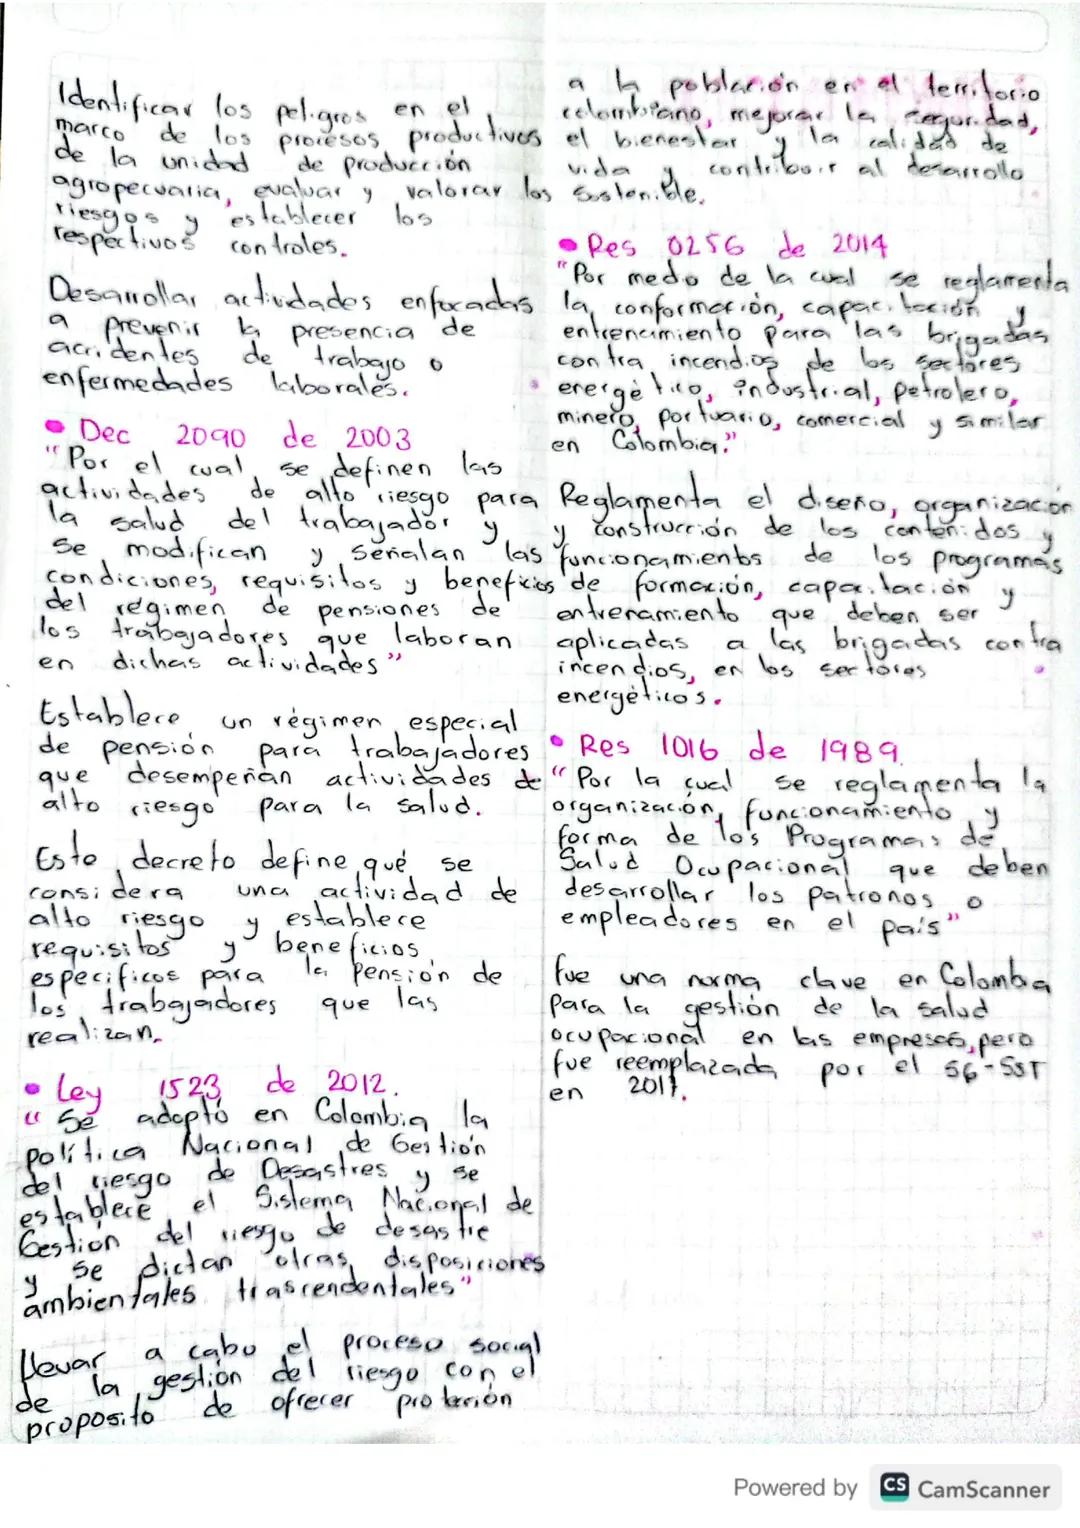 Identificar los peligros en el
marco de los procesos productivos
de la unidad de producción
agropecuaria, evaluar y valorar los
riesgos y establecer los
respectivos controles.
Desarrollar actividades enfocadas
a prevenir la presencia de
accidentes de trabajo o
enfermedades laborales.
• Dec 2090 de 2003
"Por el cual se definen las
actividades de alto riesgo para
la salud del trabajador y
se modifican y señalan las
condiciones, requisitos y beneficios
del régimen de pensiones de
los trabajadores que laboran
en dichas actividades"
Establece un régimen especial
de pensión para trabajadores
que desempeñan actividades de
alto riesgo para la salud.
Este decreto define qué se
considera una actividad de
alto riesgo y establece
requisitos y beneficios
especificos para la pensión de
los trabajadores que las
realizan.
• Ley 1523 de 2012.
"Se adoptó en Colombia la
política Nacional de Gestión
del riesgo de Desastres y se
establece el Sistema Nacional de
Gestión del riesgo de desastre
y se dictan otras disposiciones
ambientales trascendentales"
llevar a cabo el proceso social
de la gestión del riesgo con el
proposito de ofrecer protección
a la población en el territorio
colombiano, mejorar la seguridad,
el bienestar y la calidad de
vida y contribuir al desarrollo
sostenible.
• Res 0256 de 2014
"Por medio de la cual se reglamenta
la conformación, capacitación y
entrenamiento para las brigadas
contra incendios de los sectores
energético, industrial, petrolero,
minero, portuario, comercial y similar
en Colombia."
Reglamenta el diseño, organización
y construcción de los contenidos y
funcionamiento de los programas
de formación, capacitación y
entrenamiento que deben ser
aplicadas a las brigadas contra
incendios, en los sectores
energéticos.
• Res 1016 de 1989.
"Por la cual se reglamenta la
organización, funcionamiento y
forma de los Programas de
Salud Ocupacional que deben
desarrollar los patronos o
empleadores en el país"
fue una norma clave en Colombia
para la gestión de la salud
ocupacional en las empresas, pero
fue reemplazada por el SG-SST
en 2017.
Powered by CS CamScanner